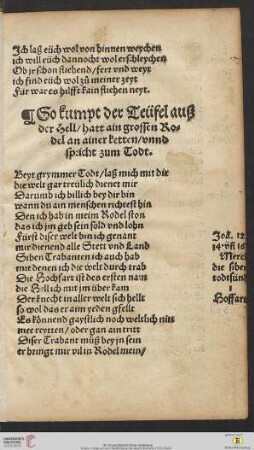 Ich laß eüch wol von hinnen weychen
ich will eüch dannocht wol erschleychen
Ob jr schon fliehend / ferr vnd weyt
ich find eüch wol zů meiner zeyt
Für war es hilfft kain fliehen neyt.
¶ So kumpt der Teüfel auß
der Hell / hatt ain grossen Ro-
del an ainer ketten / vnnd
spricht zum Todt.
Beyt grymmer Todt / laß mich mit dir
die welt gar treülich dienet mir
Darumb ich billich bey dir bin
wann du ain menschen richtest hin
Den ich hab in meim Rodel ston
das ich jm geb sein sold vnd lohn
Fürst diser welt bin ich genant
mir dienend alle Stett vnd Land
Siben Trabanten ich auch hab
mit denen ich die welt durch trab
Die Hochfart ist des ersten nam
die Hell ich mit jm über kam
Der knecht in aller welt sich helt
so wol das er aim yeden gfellt
Es könnend gaystlich noch weltlich nitt
mer reytten / oder gan ain tritt
Diser Trabant můß bey jn sein
er bringt mir vil in Rodel mein /
Joã. 12
14. vñ 16
Merck
die siben
todtsünd
1
Hoffart